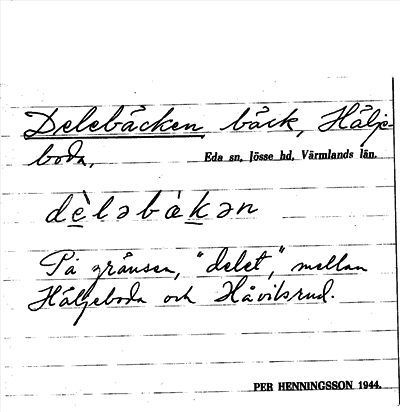 Delebäcken bäck, Hälje-
boda,
Eda sn, Jösse hd, Värmlands län.
dèləbàkən
På gränsen, "delet," mellan
Häljeboda och Håvilsrud.
PER HENNINGSSON 1944.